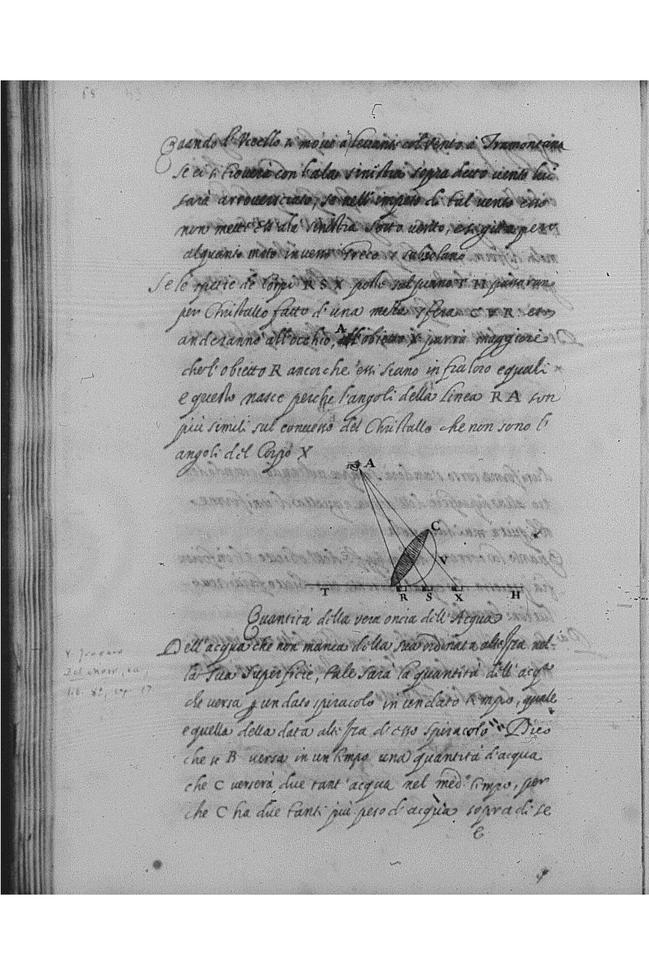 5
Quando l'Vcello si move à levante col vento à Tramontana
se ei si troverà con l'ala sinistra sopra detto vento lui
sarà arrovesciato, se nell'impeto di tal vento esso
non mette essa ale sinistra sotto vento, e si gitta per
alquanto moto inverso Greco
Se le spetie di Corpi R S X poste sul piano T H
per Christallo fatto d'una meza Sfera C V R
anderanno all'occhio A, l'obietto X parrà maggiore
che l'obietto R ancorche essi siano infra loro equali
e questo nasce perche l'angoli della linea R A son
più simili sul convesso del Christallo che non sono l'
angoli del Corpo X
A
C
V
T R S X H
Quantità della vera oncia dell'Acqua
Dell'acqua che non manca della sua ordinata altezza nel-
la sua superficie, tale sarà la quantità dell'acqa
che versa p un dato spiracolo in un dato tempo, quale
e quella della data altezza d'esso spiracolo Dico
che se B versa in un tempo una quantità d'acqua
che C verserà due tant'acqua nel med.o tempo, per
che C ha due tanti più peso d'acqua sopra di se
e
lib. 8°, cap. 17